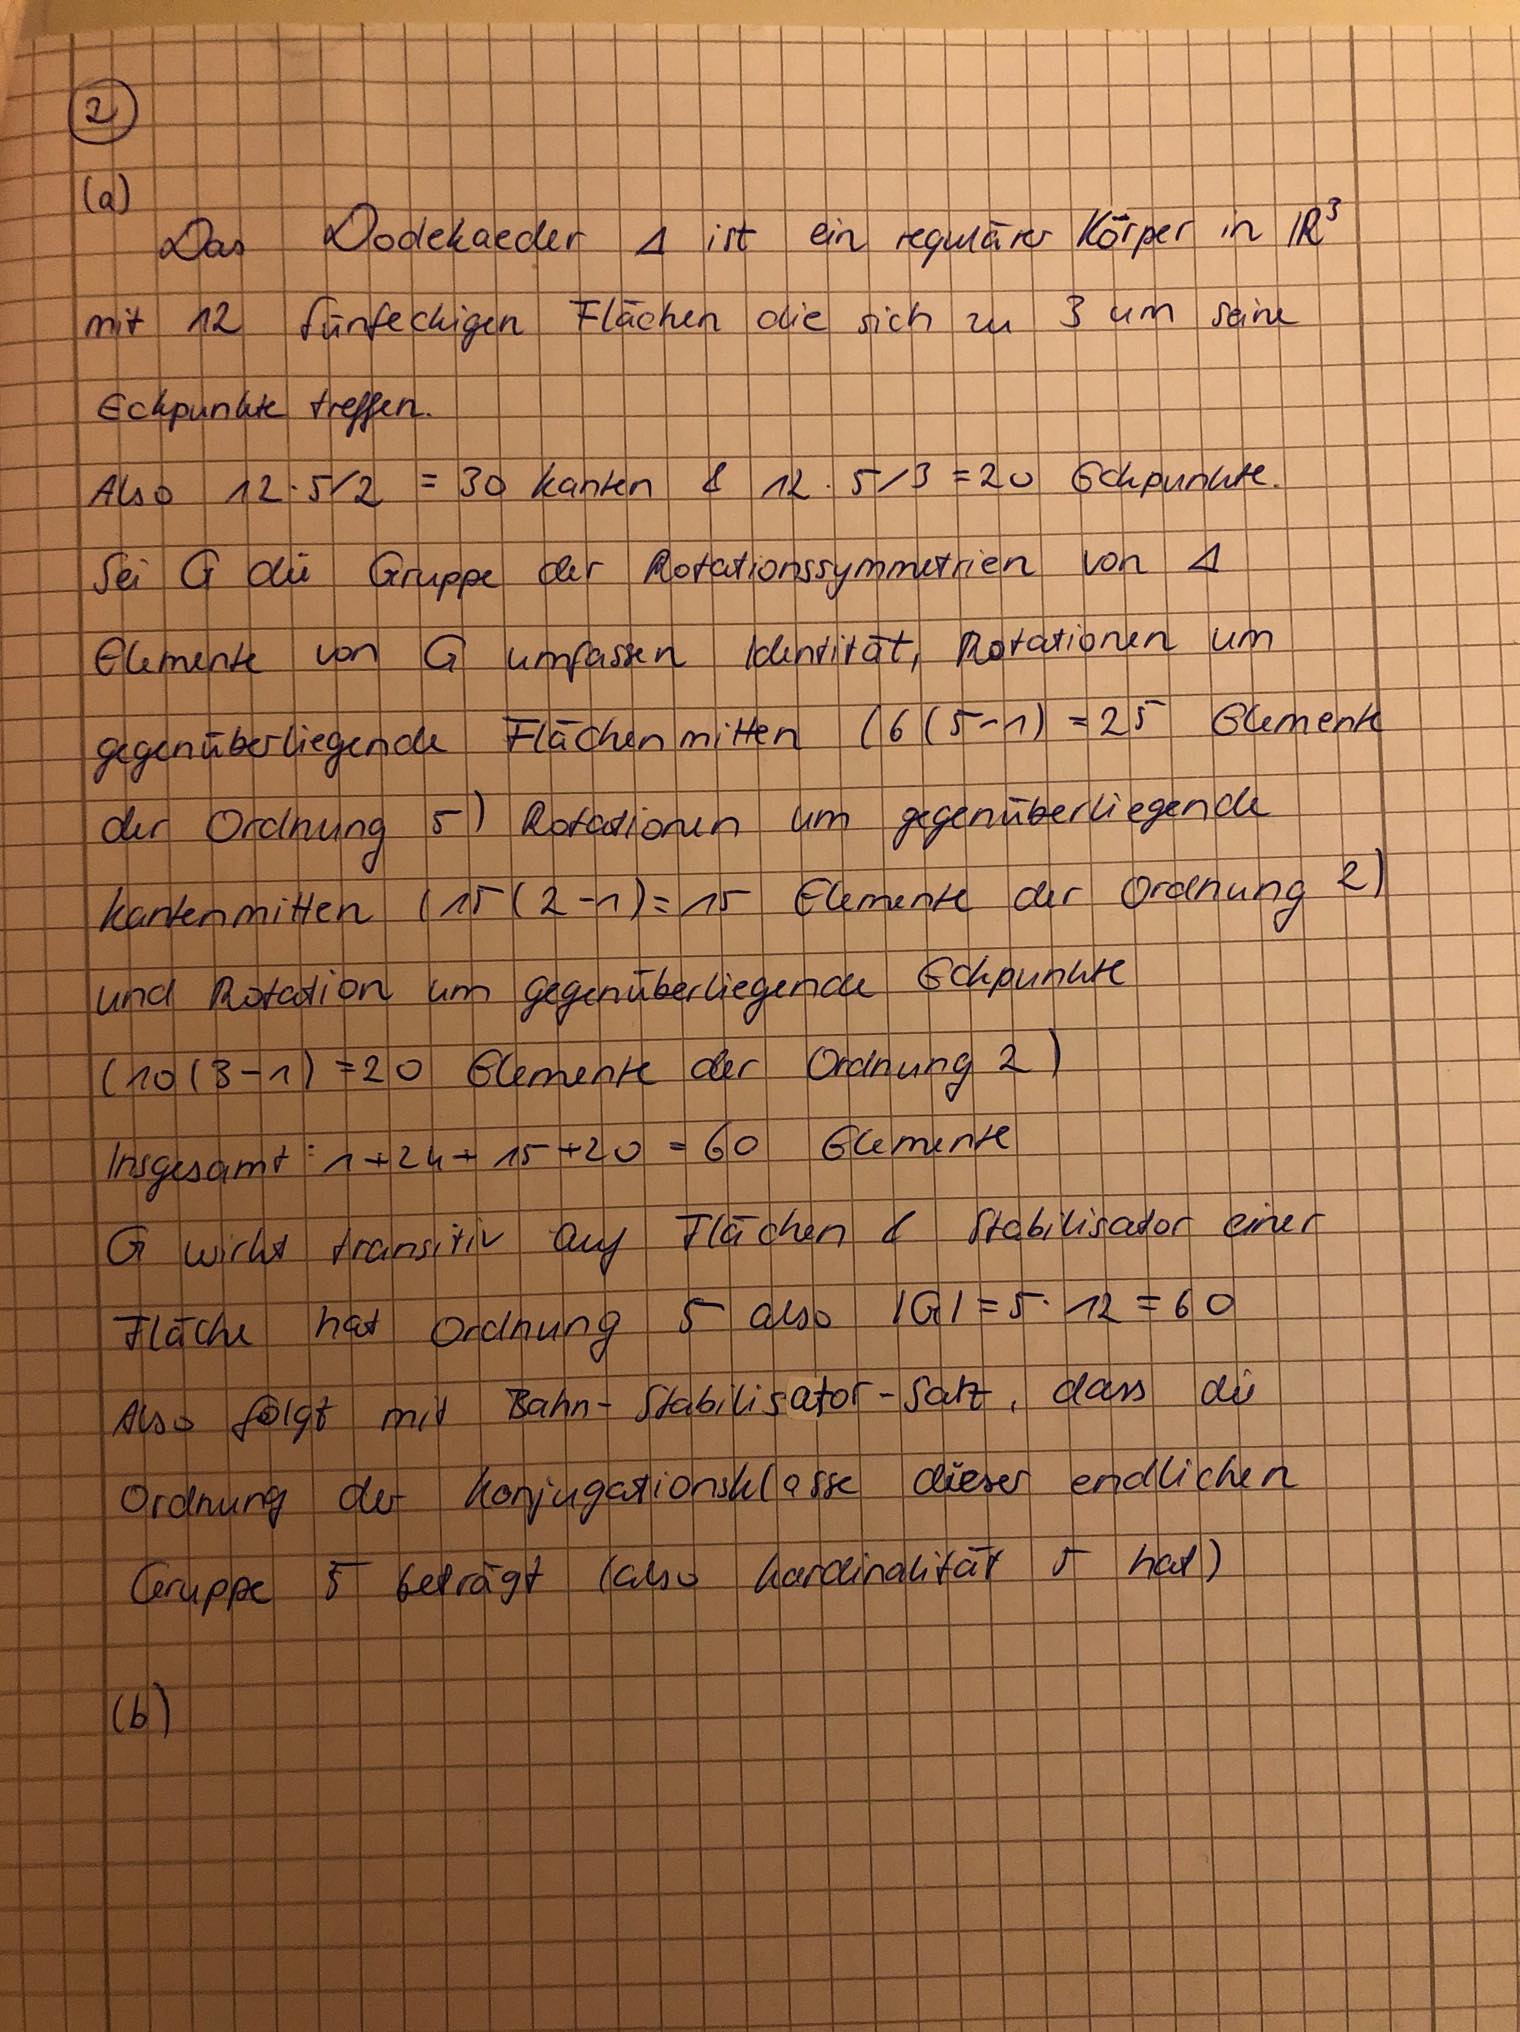 2
(a)
Das Dodekaeder Δ ist ein regulärer Körper in ℝ³
mit 12 fünfeckigen Flächen die sich zu 3 um seine
Eckpunkte treffen.
Also 12·5/2 = 30 Kanten & 12·5/3 = 20 Eckpunkte.
Sei G die Gruppe der Rotationssymmetrien von Δ
Elemente von G umfassen Identität, Rotationen um
gegenüberliegende Flächenmitten (6(5-1) = 25 Elemente
der Ordnung 5) Rotationen um gegenüberliegende
Kantenmitten (15(2-1) = 15 Elemente der Ordnung 2)
und Rotation um gegenüberliegende Eckpunkte
(10(3-1) = 20 Elemente der Ordnung 2)
Insgesamt: 1+24+15+20 = 60 Elemente
G wirkt transitiv auf Flächen & Stabilisator einer
Fläche hat Ordnung 5 also |G| = 5·12 = 60
Also folgt mit Bahn-Stabilisator-Satz, dass die
Ordnung der Konjugationsklasse dieser endlichen
Gruppe 5 beträgt (also Kardinalität 5 hat)
(b)